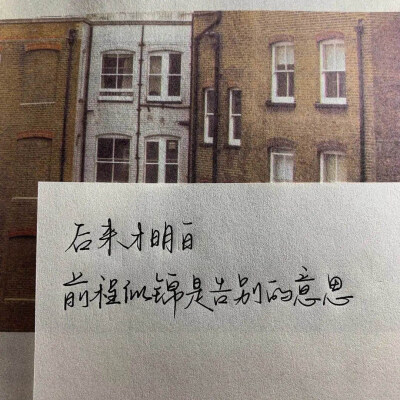 后来才明白
前程似锦是告别的意思